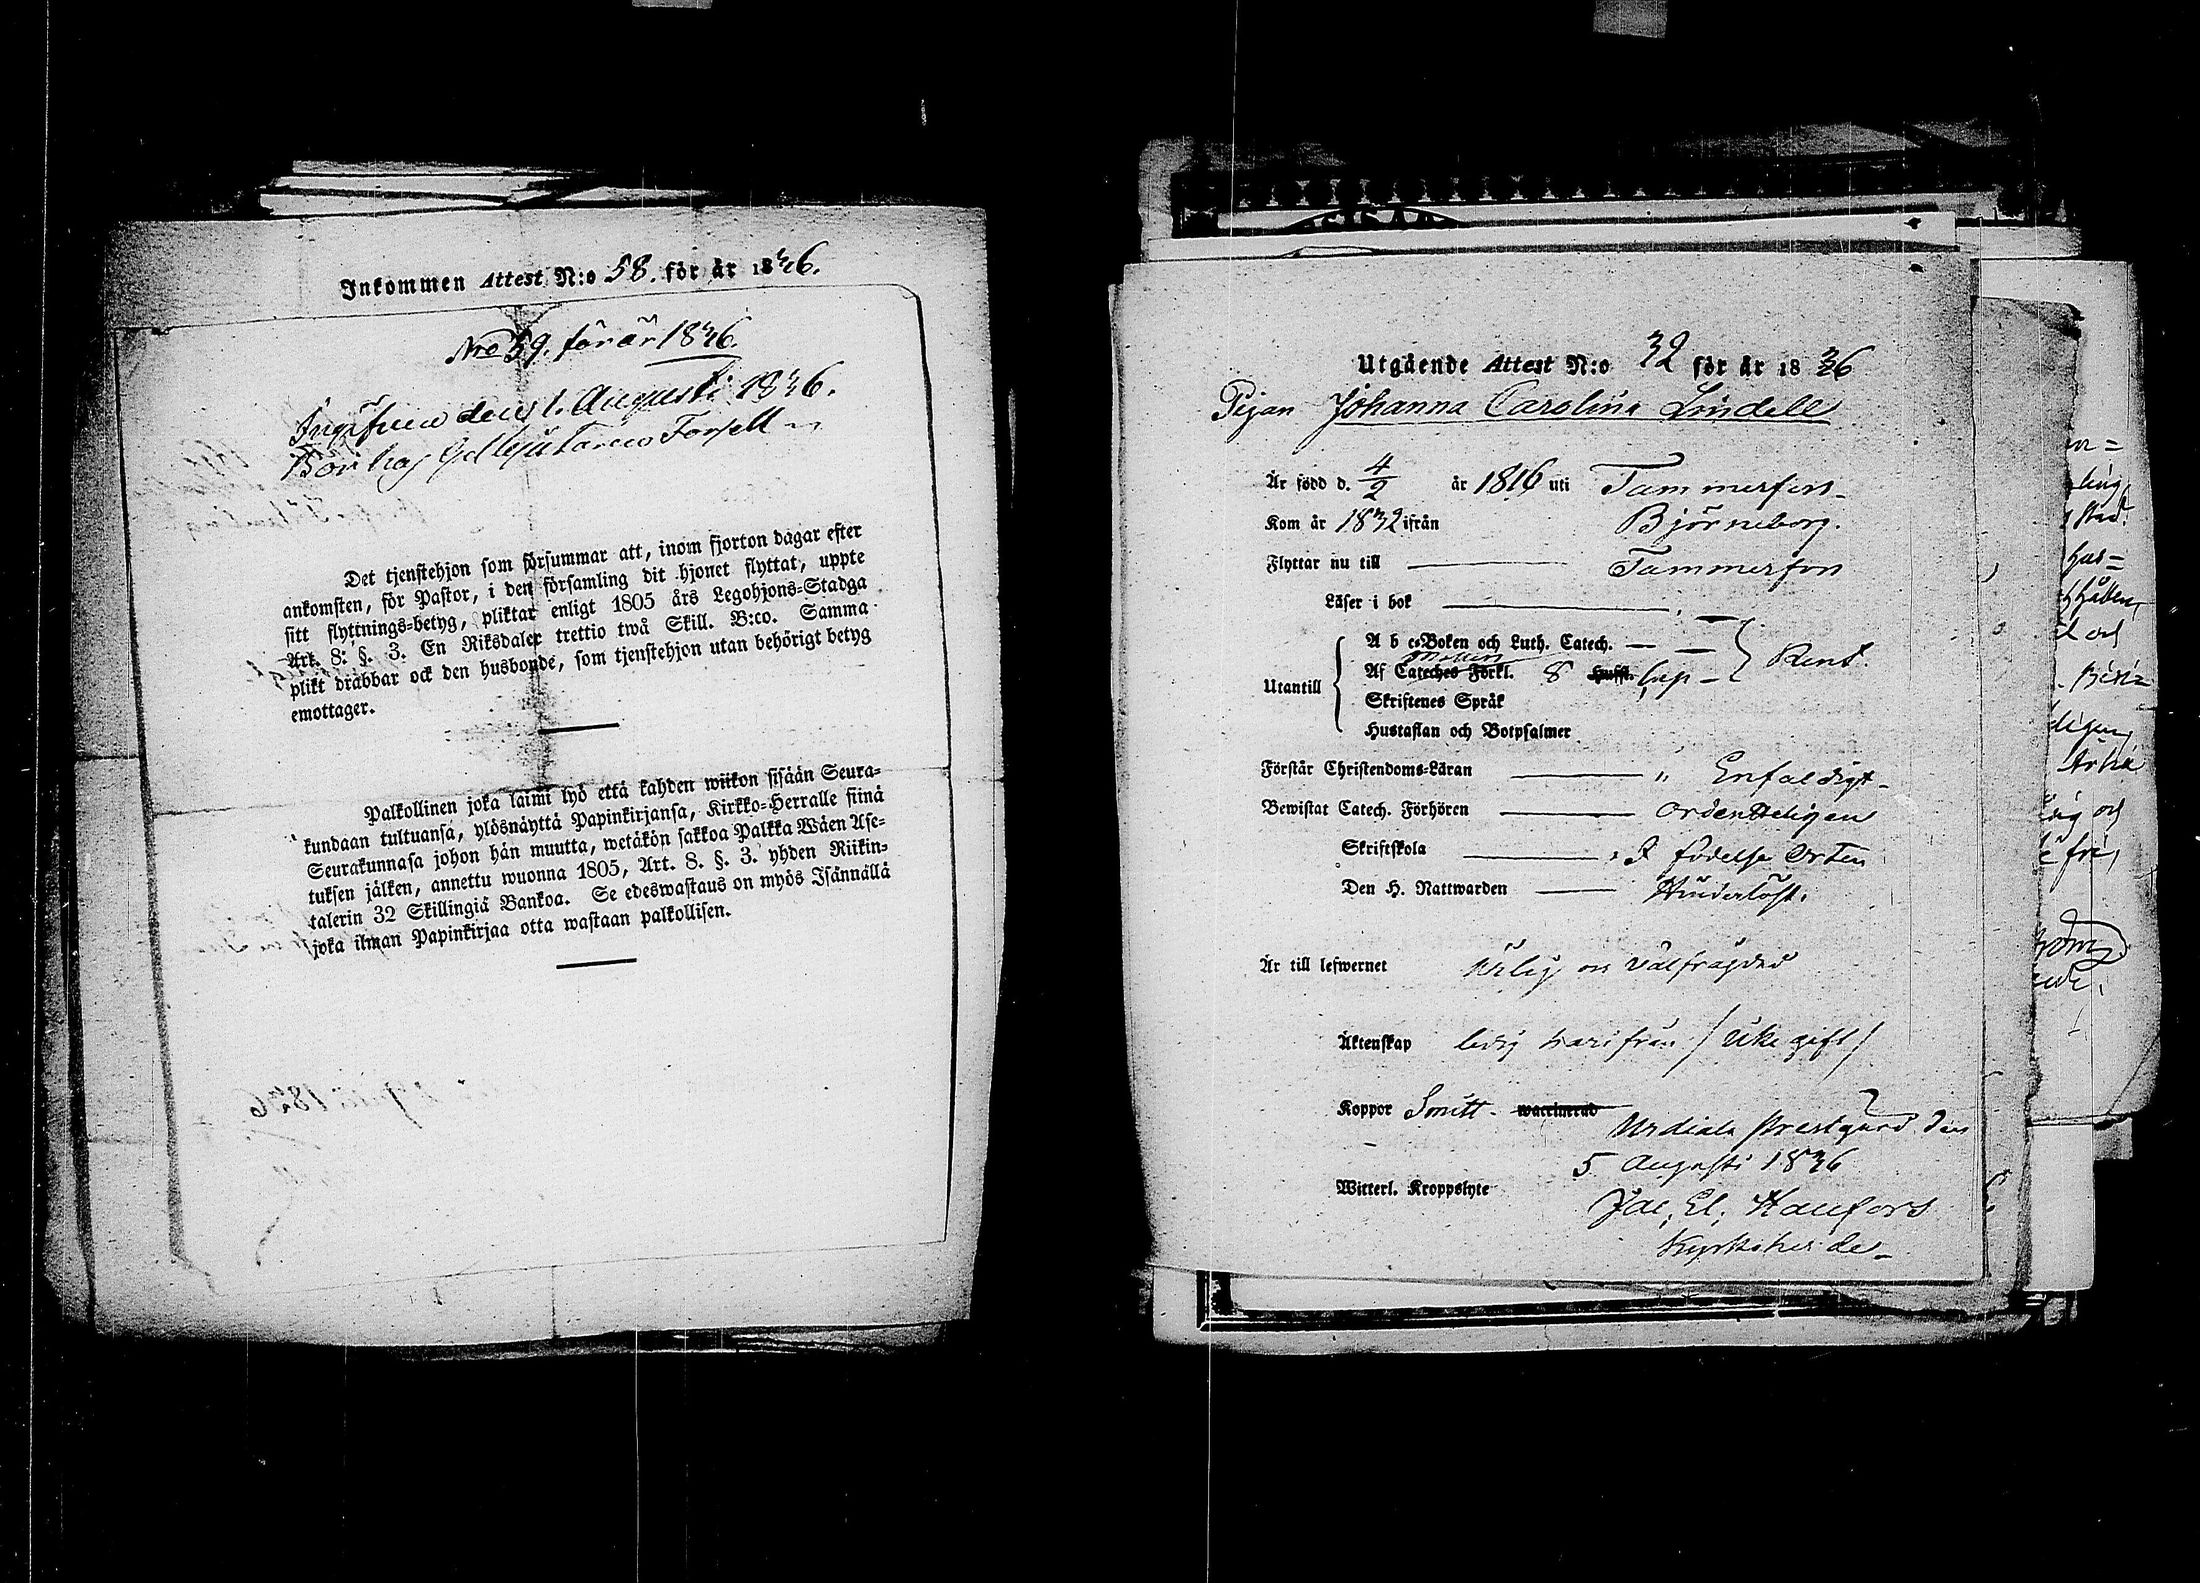 Inkommen Attest N:o 58. för år 1836.
Nro 59. för år 1836.
Ingifven den 1. Augusti 1836.
Bor hos Forsell
Det tjenstehjon som försummar att, inom fjorton dagar efter
ankomsten, för Pastor, i den församling dit hjonet flyttat, uppte
sitt flyttnings-betyg, pliktar enligt 1805 års Legohjons-Stadga
Art. 8: §. 3. En Riksdaler trettio twå Skill. B:co. Samma
plikt drabbar ock den husbonde, som tjenstehjon utan behörigt betyg
emottager.
Palkollinen joka laimi lyö että kahden wiikon sisään Seura-
kundaan tultuansa, ylösnäyttä Papinkirjansa, Kirkko-Herralle siinä
Seurakunnasa johon hän muutta, wetäkön sakkoa Palkka Wäen Ase-
tuksen jälken, annettu wuonna 1805, Art. 8. §. 3. yhden Riikin-
talerin 32 Skillingiä Bankoa. Se edeswastaus on myös Isännällä
joka ilman Papinkirjaa otta wastaan palkollisen.
Utgående Attest N:o 32 för år 1836
Pigan Johanna Carolina Lindell
Är född d. 4/2 år 1816 uti Tammerfors
Kom år 1832 ifrån Björneborg.
Flyttar nu till Tammerfors
Läser i bok
A b c-Boken och Luth. Catech.
Utantill Af Cateches Förkl. 8 Hufst. Cap Rent.
Skriftenes Språk
Hustaflan och Botpsalmer
Förstår Christendoms-Läran Enfaldigt
Bewistat Catech. Förhören Ordenteligen
Skriftskola I födelse Orten
Den H. Nattwarden Hinderlöst.
Är till lefwernet ärlig och välfrägdad
Äktenskap ledig härifrån / icke gift /
Koppor Smitt. waccinerad
Urdiala Prestgård den
5 Augusti 1836
Wittterl. Kroppslyte
Jac. El. Haufors
Kyrkoherde